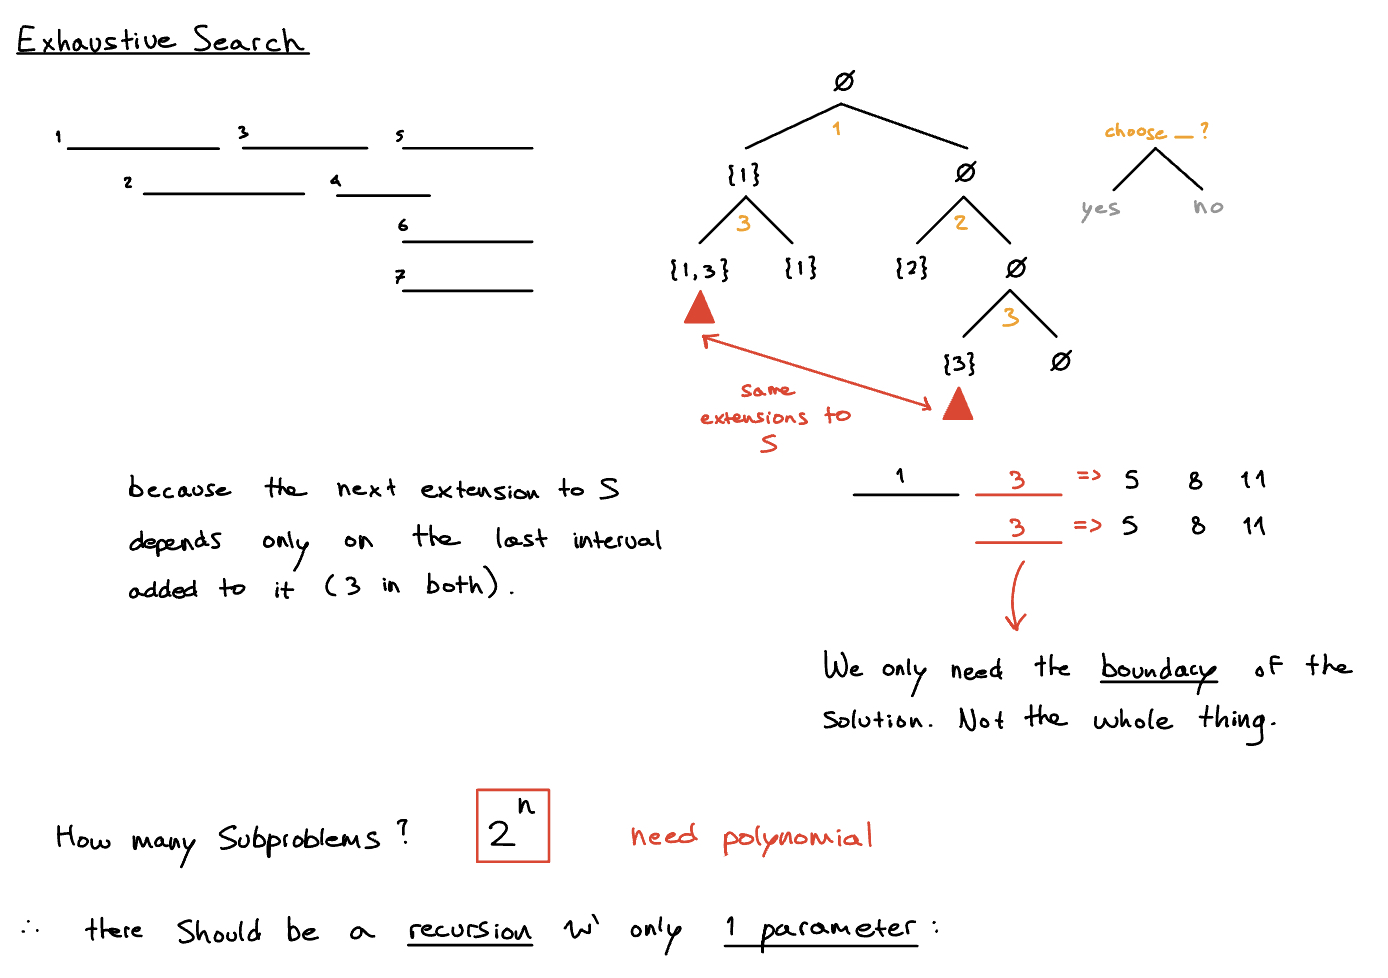 Exhaustive Search
∅
1 3 5
1
choose _ ?
2 4
{1} ∅
yes no
6
3 2
7
{1,3} {1} {2} ∅
3
{3} ∅
same
extensions to
S
1 3 => 5 8 11
3 => 5 8 11
because the next extension to S
depends only on the last interval
added to it (3 in both).
We only need the boundary of the
Solution. Not the whole thing.
How many Subproblems? 2^n need polynomial
∴ there Should be a recursion w' only 1 parameter: